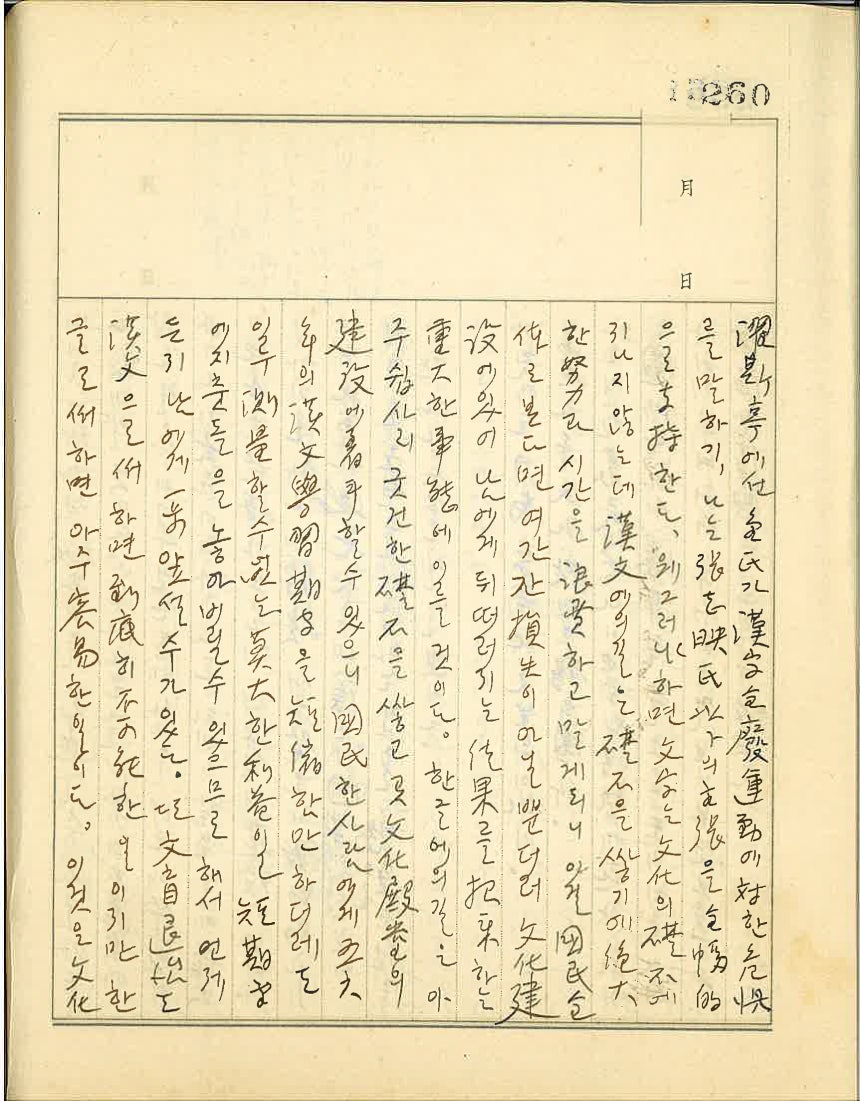 260
月
日
濯斯亭에서 金氏가 漢字全廢運動에 対한 危惧
를 말하기, 나는 張志暎氏 以下의 主張을 全幅的
으로 支持한다. 왜 그러냐 하면 文字는 文化의 礎石에
지나지 않는데 漢文에의 길은 礎石을 쌓기에 絶大
한 努力과 시간을 浪費하고 말게 되니 이걸 國民全
体로 본다면 여간한 損失이 아닐뿐더러 文化建
設에 있어 남에게 뒤떠러지는 結果를 招来하는
重大한 事態에 이를 것이다. 한글에의 길은 아
주 쉽사리 굳건한 礎石을 쌓고 곳 文化殿堂의
建設에 着手할 수 있으니 國民 한사람에게 五六
年의 漢文學習期字을 短縮한만 하더레도
일우 測量할 수 없는 莫大한 利益일 短期字
에 지춧돌을 놓아버릴 수 있으므로 해서 언제
든지 남에게 一步 앞설 수가 있다. 또 文盲退治도
漢文으로써 하면 到底히 不可能한 일이지만 한
글로써 하면 아주 容易한 일이다. 이것은 文化